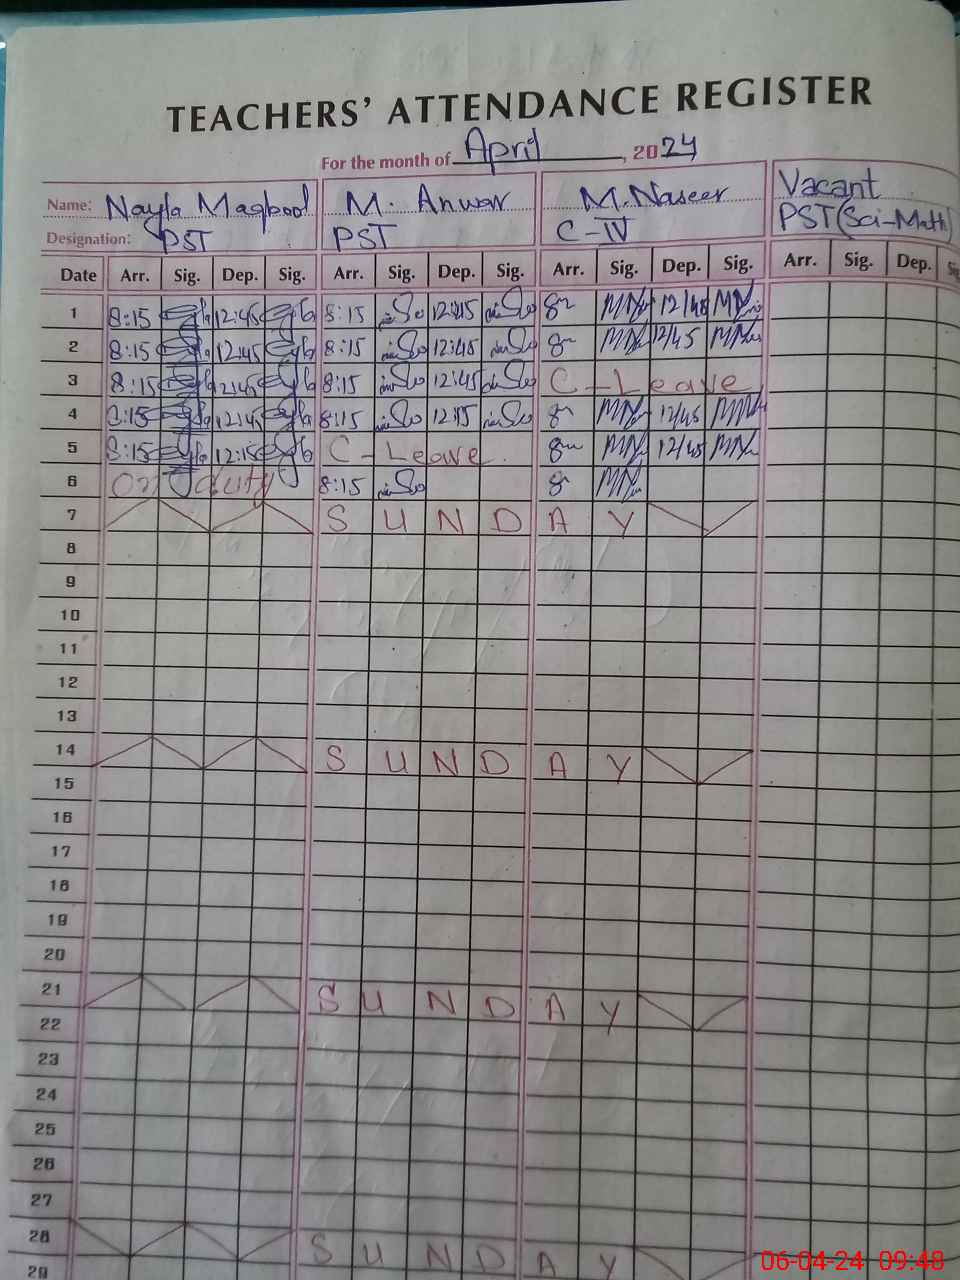 TEACHERS' ATTENDANCE REGISTER
For the month of April, 2024
Name: Nayla Maqbool M. Anwar M. Naseer Vacant
Designation: PST PST C-IV PST (Sci-Math)
Date Arr. Sig. Dep. Sig. Arr. Sig. Dep. Sig. Arr. Sig. Dep. Sig. Arr. Sig. Dep. Sig
1 8:15 12:45 8:15 12:45 12/45
2 8:15 12:45 8:15 12:45 12/45
3 8:15 12:45 8:15 12:45 C-Leave
4 8:15 12:45 8:15 12:15 12/45
5 8:15 12:15 C-Leave 12/45
6 On duty 8:15
7 SUNDAY
8
9
10
11
12
13
14 SUNDAY
15
16
17
18
19
20
21 SUNDAY
22
23
24
25
26
27
28 SUNDAY
29
06-04-24 09:48